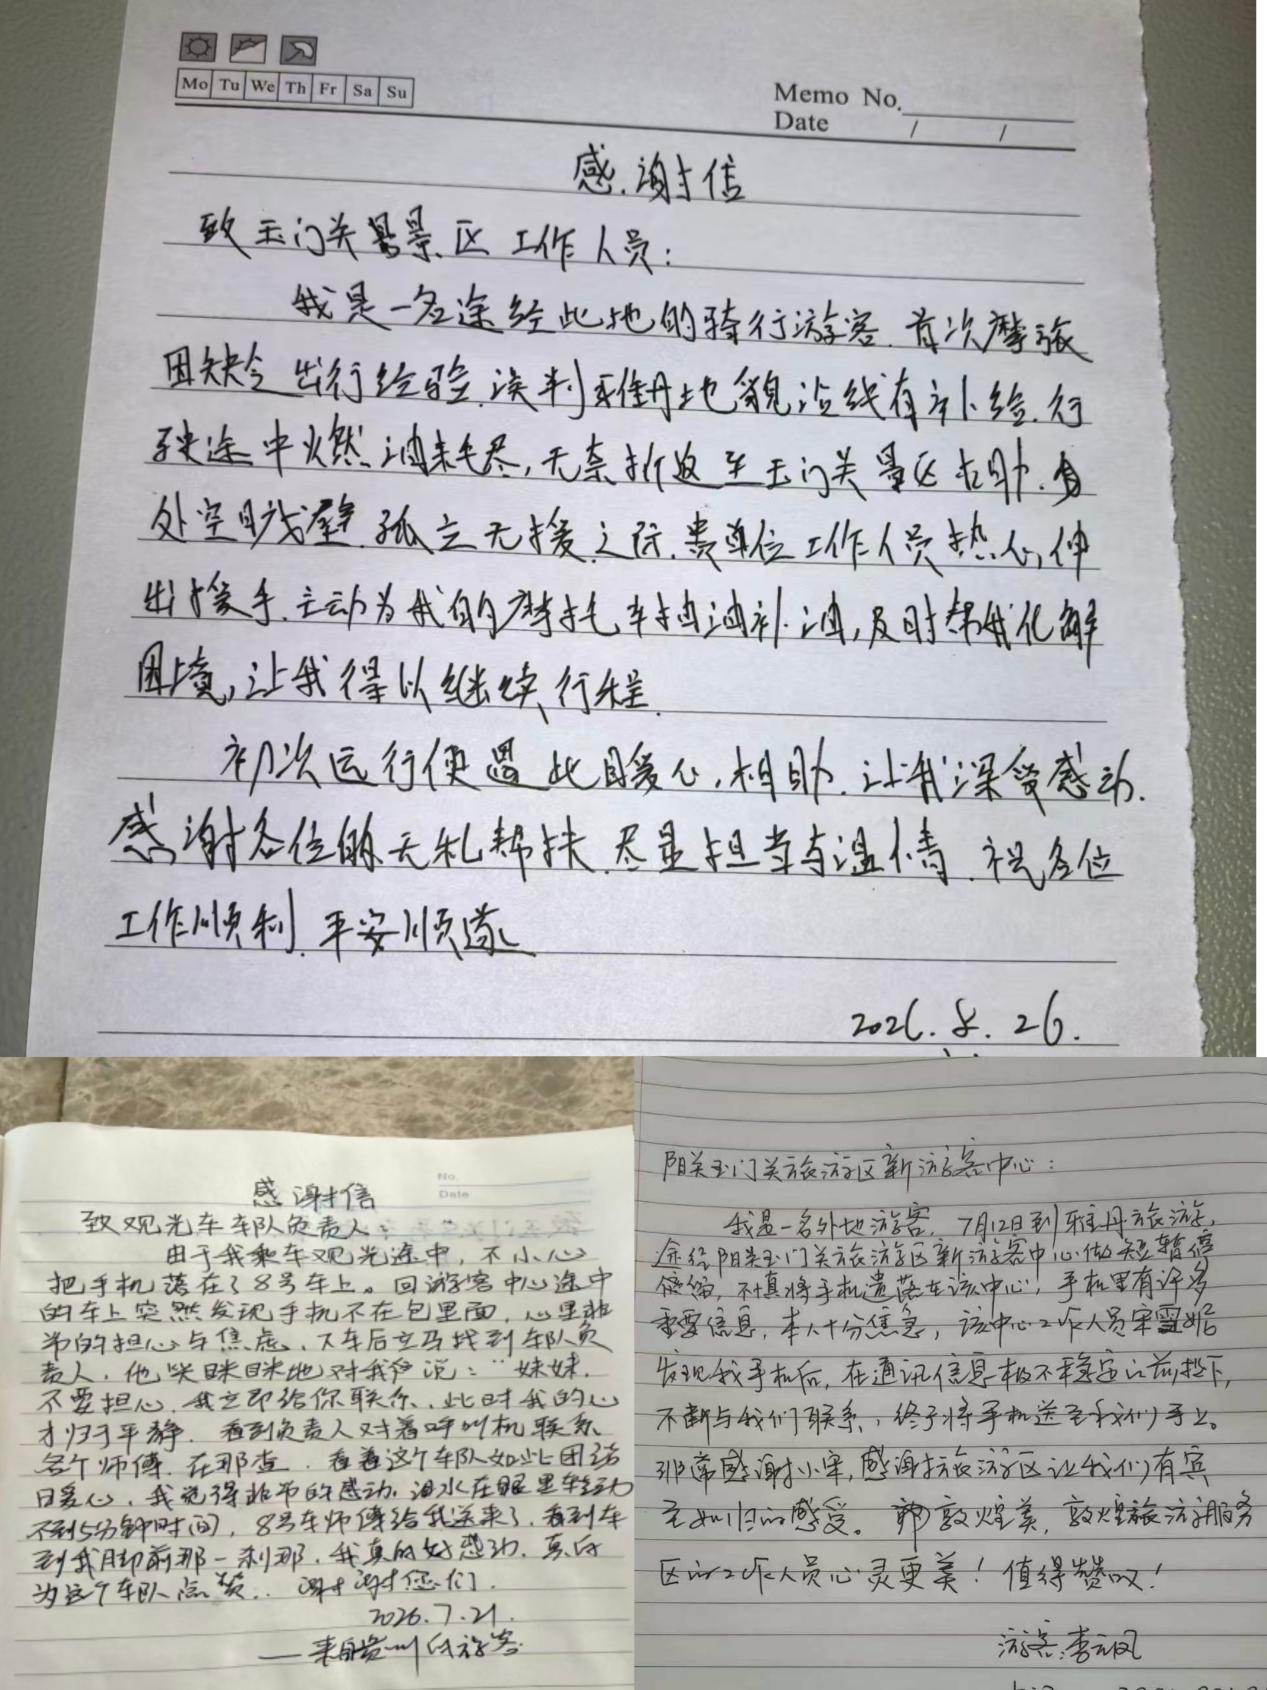 Mo Tu We Th Fr Sa Su
Memo No.
Date / /
感谢信
致玉门关景区工作人员:
我是一名途经此地的骑行游客.首次摩旅
因缺乏出行经验.误判雅丹地貌沿线有补给.行
驶途中燃油耗尽,无奈折返至玉门关景区求助.身
处空旷戈壁.孤立无援之际.贵单位工作人员热心伸
出援手.主动为我的摩托车抽油补油,及时帮我化解
困境,让我得以继续行程.
初次远行便遇此暖心相助.让我深受感动.
感谢各位的无私帮扶.尽显担当与温情.祝各位
工作顺利.平安顺遂
2026.5.26.
No.
Date
感谢信
致观光车车队负责人:
由于我乘车观光途中,不小心
把手机落在了8号车上。回游客中心途中
的车上突然发现手机不在包里面,心里非
常的担心与焦虑,下车后立马找到车队负
责人,他笑眯眯地对我说:“妹妹,
不要担心,我立即给你联系,此时我的心
才归于平静.看到负责人对着呼叫机联系
各个师傅.在那查,看着这个车队如此团结
暖心,我觉得非常的感动,泪水在眼里转动
不到5分钟时间,8号车师傅给我送来了,看到车
到我脚前那一刹那,我真的好感动,真的
为这个车队点赞..谢谢您们.
2026.7.21.
——来自贵州的游客
阳关玉门关旅游区新游客中心:
我是一名外地游客,7月12日到雅丹旅游,
途经阳关玉门关旅游区新游客中心做短暂停
留,不慎将手机遗落在该中心,手机里有许多
重要信息,本人十分焦急,该中心工作人员宋雪妮
发现我手机后,在通讯信息极不稳定的前提下,
不断与我们联系,终于将手机送至我们手上。
非常感谢小宋,感谢旅游区让我们有宾
至如归的感受。敦煌美,敦煌旅游服务
区的工作人员心灵更美!值得赞叹!
游客:李云凤